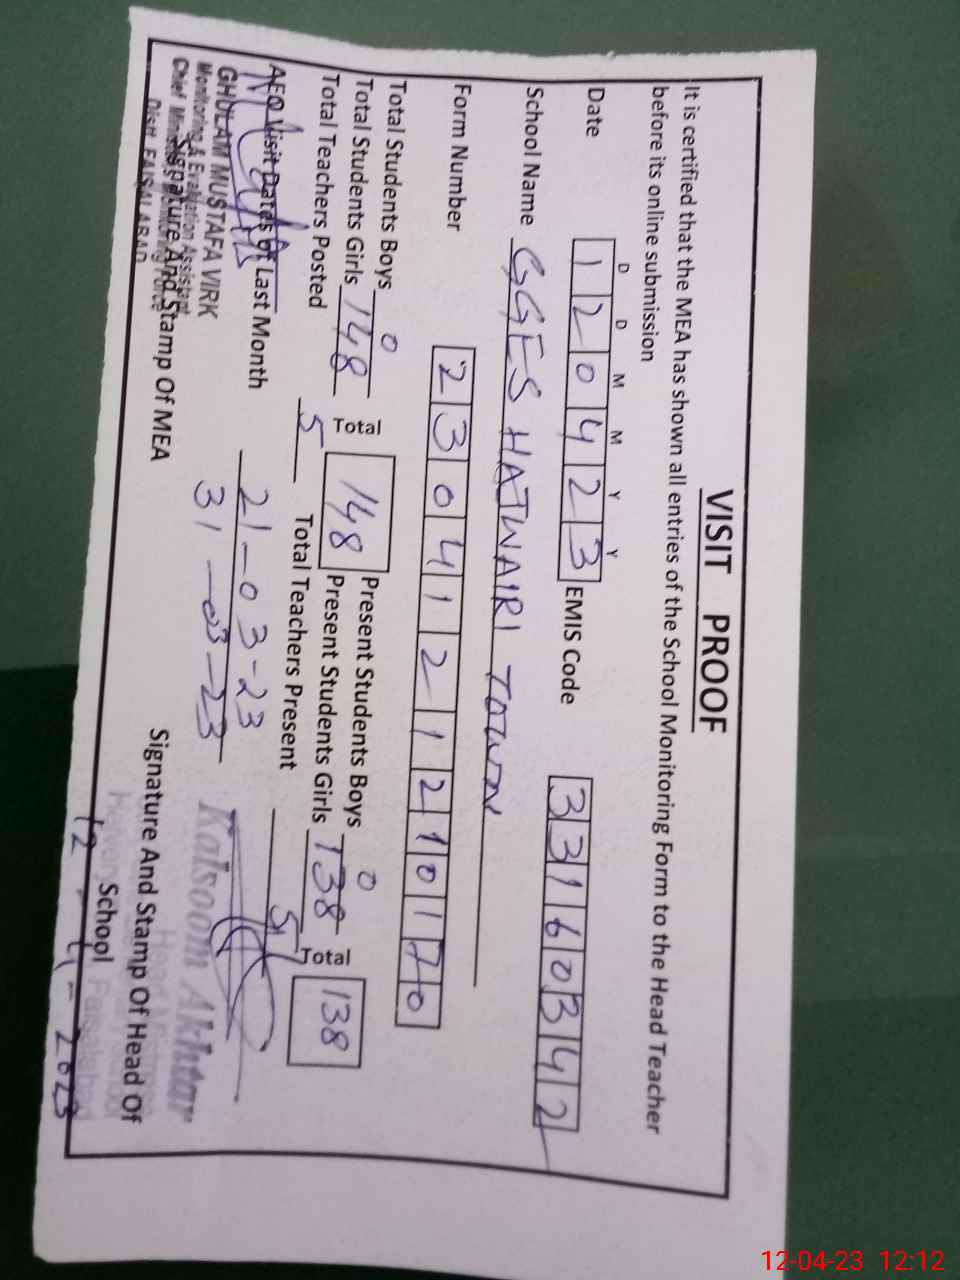 VISIT PROOF
It is certified that the MEA has shown all entries of the School Monitoring Form to the Head Teacher
before its online submission
D D M M Y Y
Date 1 2 0 4 2 3 EMIS Code 3 3 1 6 0 3 4 2
School Name GGES HAJWAIRI TOWN
Form Number 2 3 0 4 1 2 1 2 1 0 1 7 0
Total Students Boys 0 Present Students Boys 0
Total Students Girls 148 Total 148 Present Students Girls 138 Total 138
Total Teachers Posted 5 Total Teachers Present 5
AEO Visit Dates of Last Month 21-03-23
31-03-23
GHULAM MUSTAFA VIRK
Monitoring & Evaluation Assistant
Chief Minister's Monitoring Force
Distt. FAISALABAD
Signature And Stamp Of MEA
Kalsoom Akhtar
Signature And Stamp Of Head Of
School
Faisalabad
12-4-2023
12-04-23 12:12